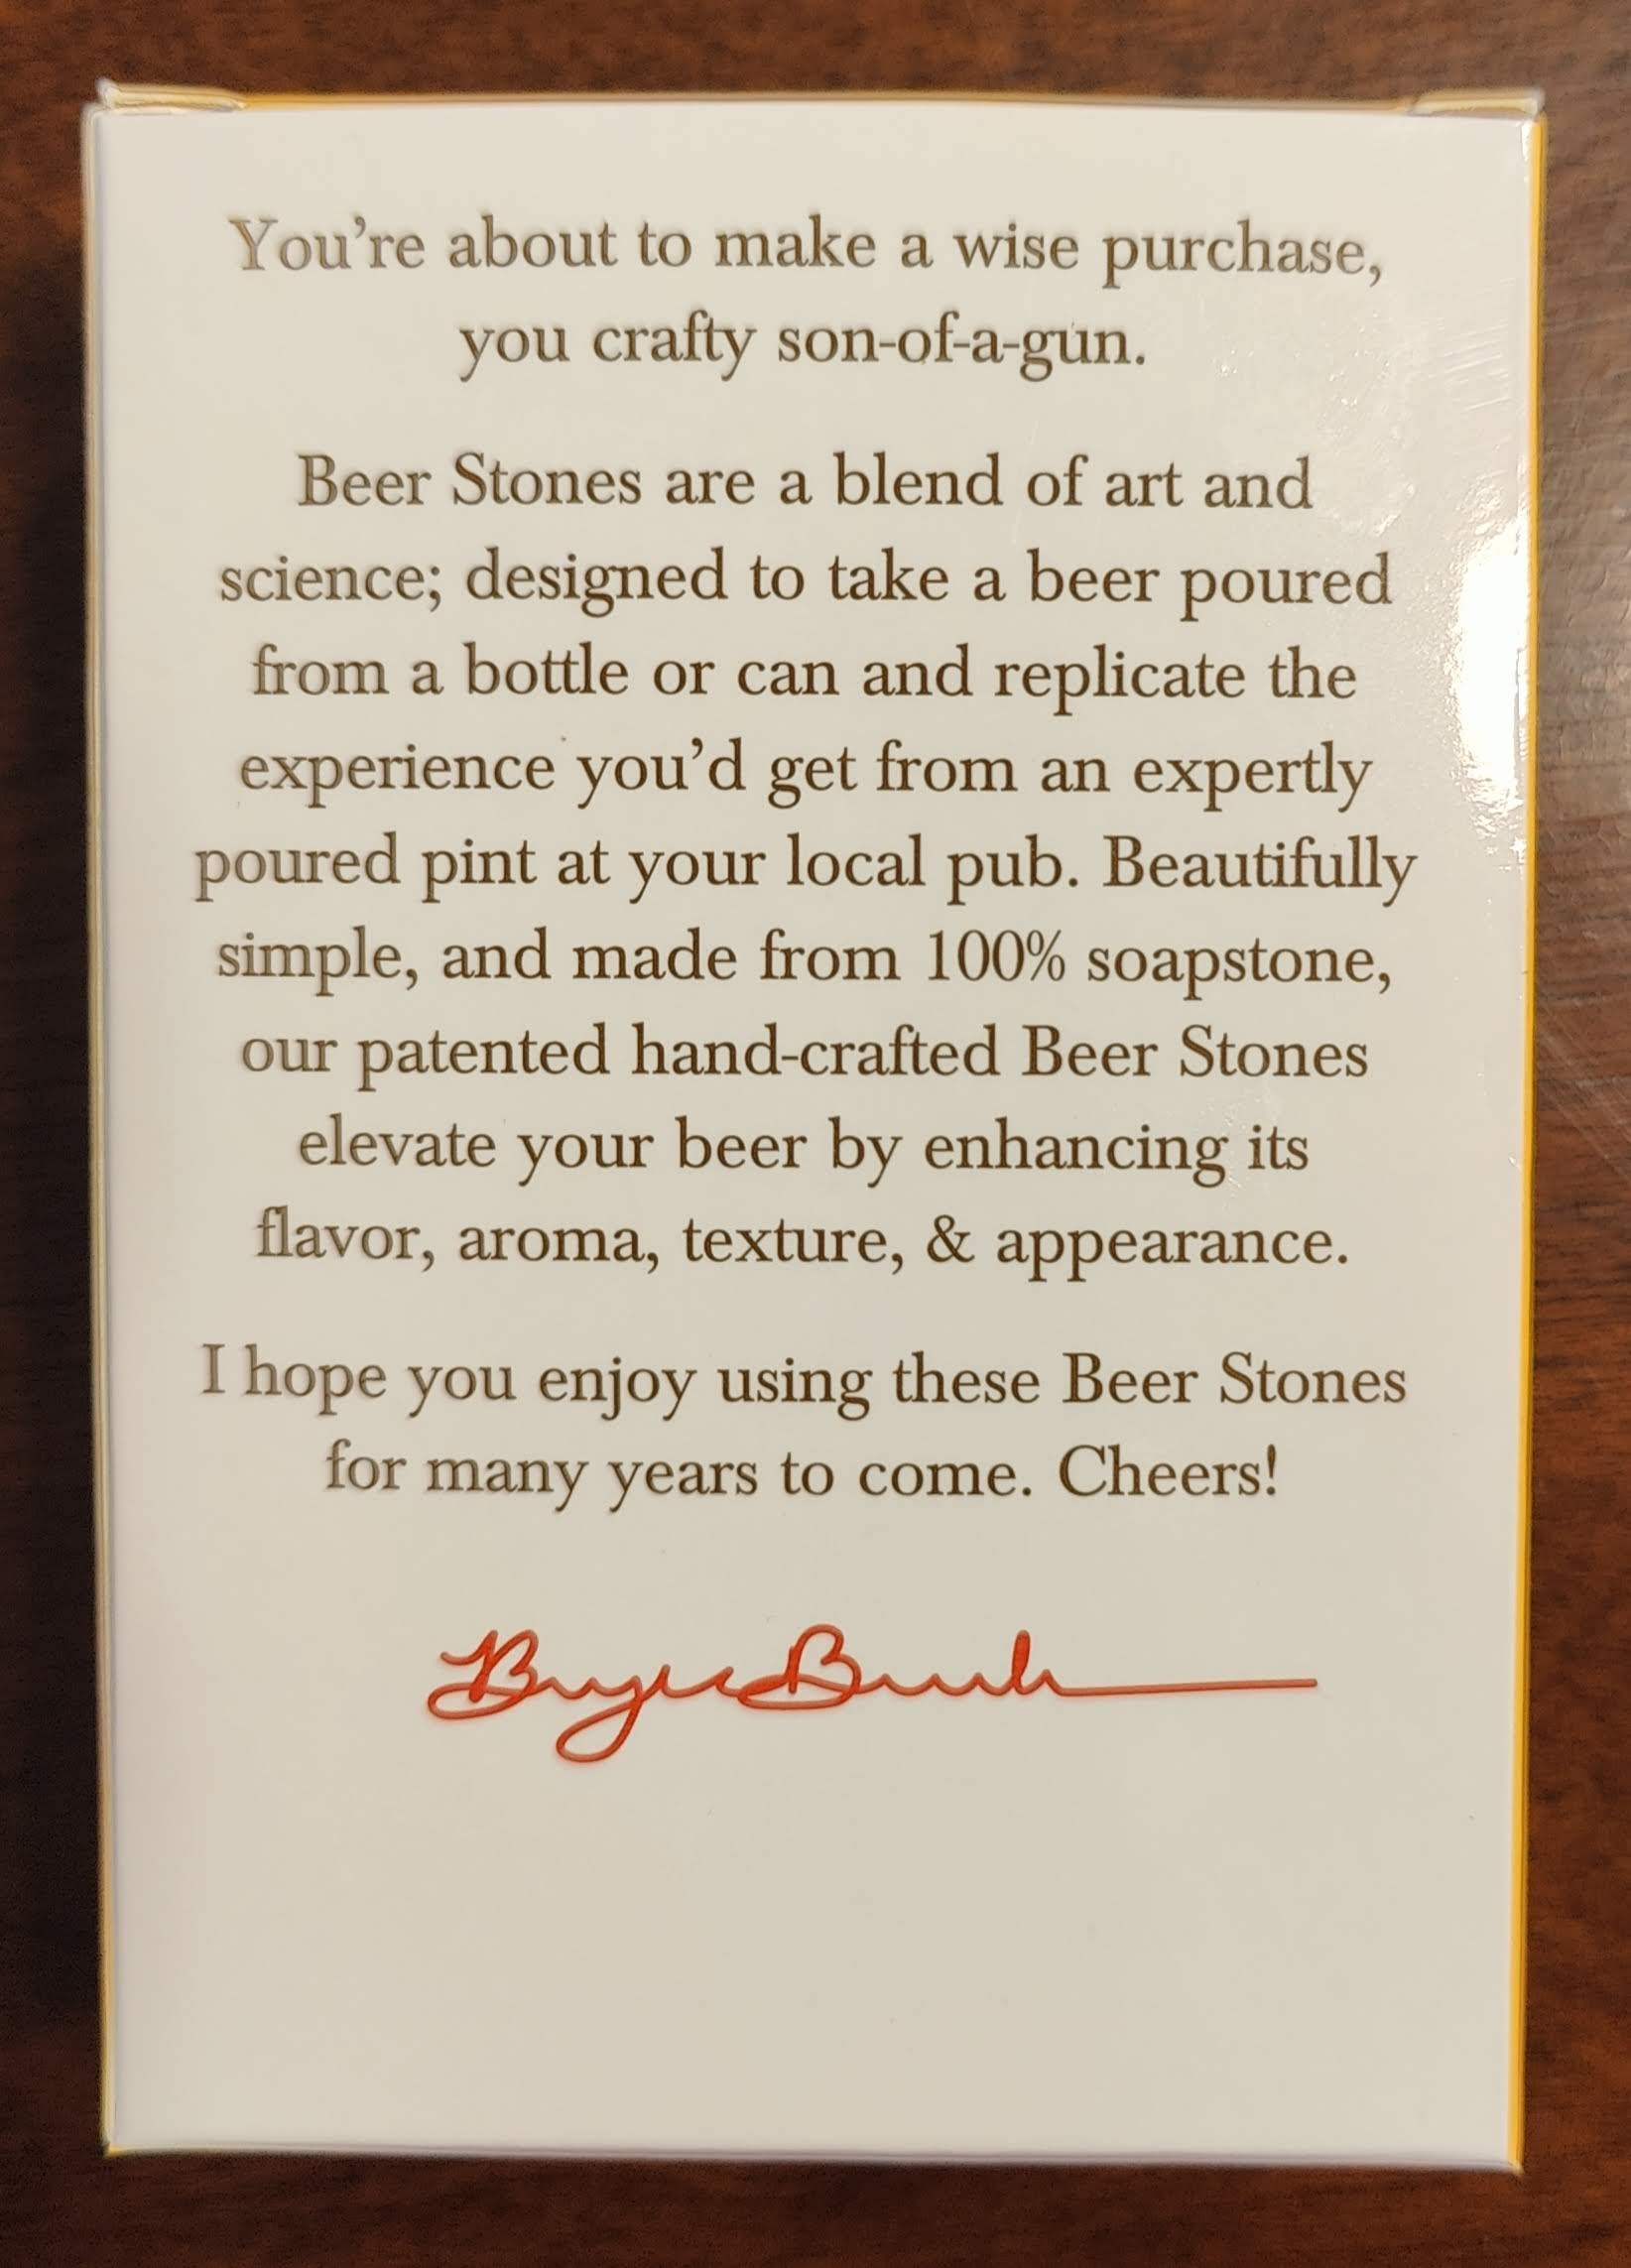 You're about to make a wise purchase,
you crafty son-of-a-gun.
Beer Stones are a blend of art and
science; designed to take a beer poured
from a bottle or can and replicate the
experience you'd get from an expertly
poured pint at your local pub. Beautifully
simple, and made from 100% soapstone,
our patented hand-crafted Beer Stones
elevate your beer by enhancing its
flavor, aroma, texture, & appearance.
I hope you enjoy using these Beer Stones
for many years to come. Cheers!